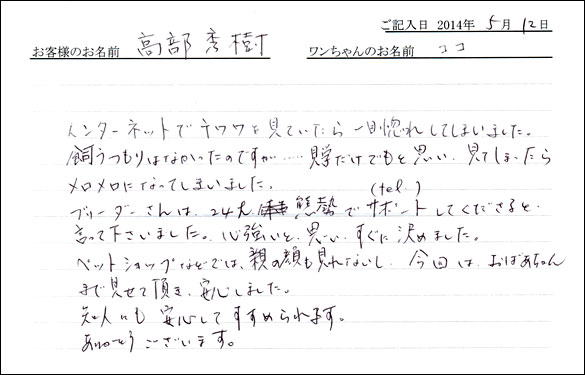 ご記入日 2014年 5月 12日
お客様のお名前 高部秀樹 ワンちゃんのお名前 ココ
インターネットでチワワを見ていたら一目惚れしてしまいました。
飼うつもりはなかったのですが……見学だけでもと思い、見てしまったら
メロメロになってしまいました。
(tel.)
ブリーダーさんは、24h 態勢でサポートしてくださると
言って下さいました。心強いと思い、すぐに決めました。
ペットショップなどでは、親の顔も見れないし、今回は、おばあちゃん
まで見せて頂き、安心しました。
知人にも安心してすすめられます。
ありがとうございます。